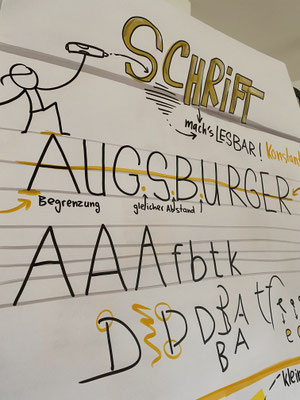 SCHRiFT
mach's LESBAR! Konstant
AUGSBURGER
Begrenzung gleicher Abstand
AAA f b t k
D D D B A t f
B A
klein